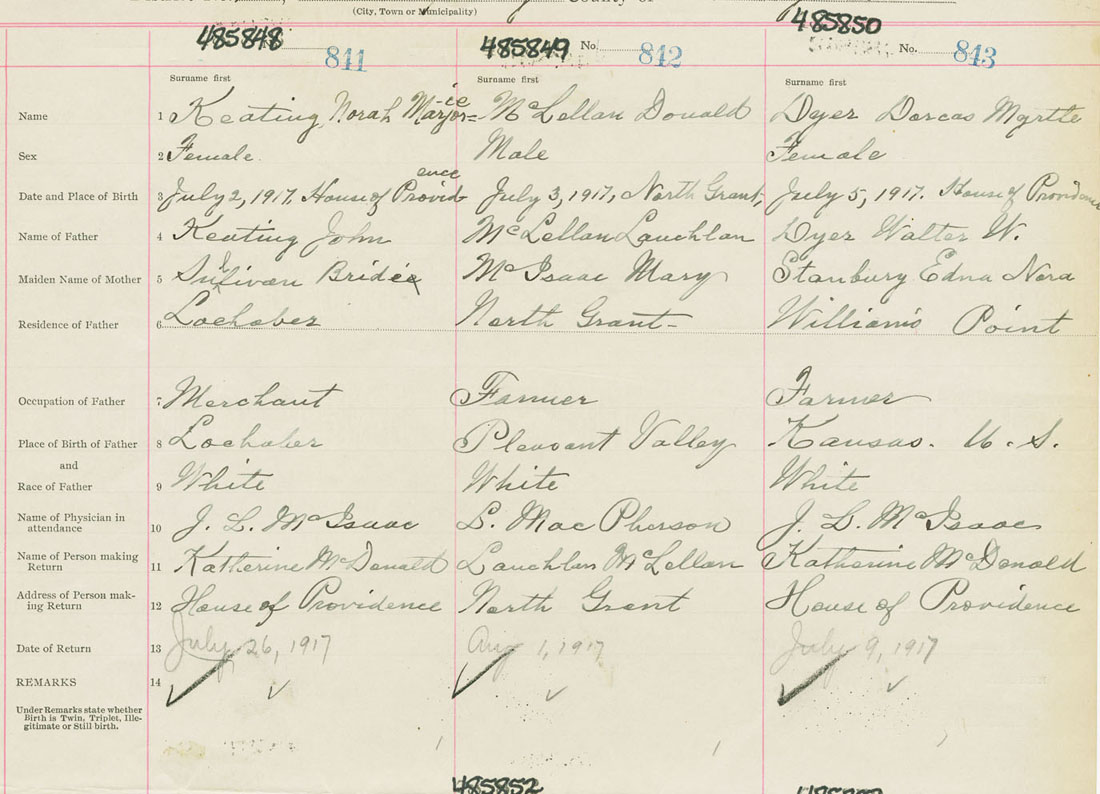 (City, Town or Municipality)
485848 841 485849 No. 842 485850 No. 843
Surname first Surname first Surname first
Name 1 Keating Norah Marjorie McLellan Donald Dyer Dorcas Myrtle
Sex 2 Female Male Female
Date and Place of Birth 3 July 2, 1917, House of Providence July 3, 1917, North Grant, July 5, 1917. House of Providence
Name of Father 4 Keating John McLellan Lauchlan Dyer Walter W.
Maiden Name of Mother 5 Sullivan Bridie McIsaac Mary Stanbury Edna Nora
Residence of Father 6 Lochaber North Grant Williams Point
Occupation of Father 7 Merchant Farmer Farmer
Place of Birth of Father 8 Lochaber Pleasant Valley Kansas. U.S.
and
Race of Father 9 White White White
Name of Physician in attendance 10 J. L. McIsaac L. MacPherson J. L. McIsaac
Name of Person making Return 11 Katherine McDonald Lauchlan McLellan Katherine McDonald
Address of Person making Return 12 House of Providence North Grant House of Providence
Date of Return 13 July 26, 1917 Aug 1, 1917 July 9, 1917
REMARKS 14
Under Remarks state whether
Birth is Twin, Triplet, Ille-
gitimate or Still-birth.
485852